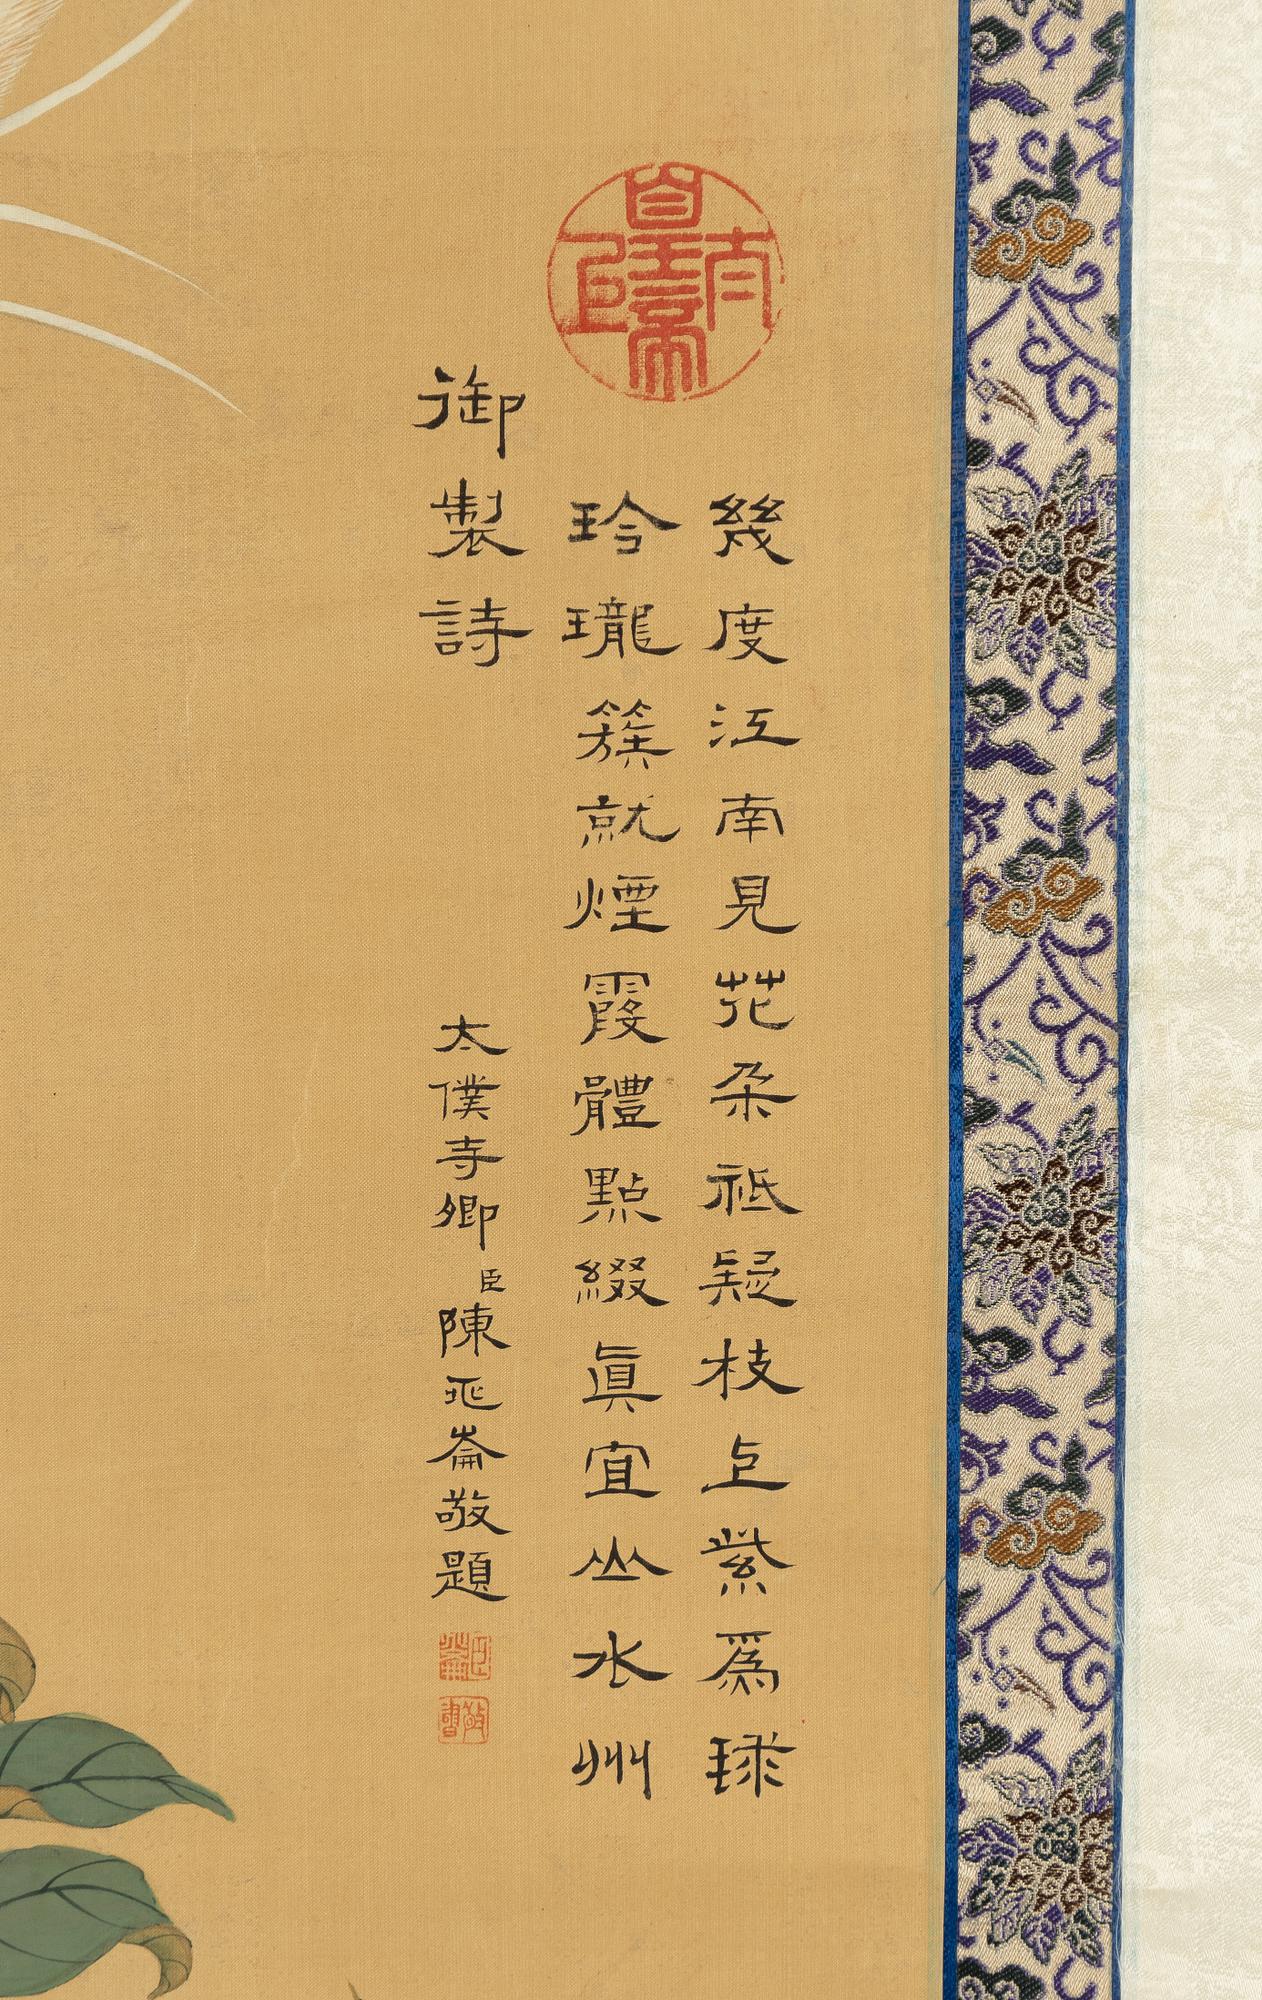 幾度江南見花朵祗疑枝上紫爲球
玲瓏簇就煙霞體點綴眞宜山水州
御製詩
太僕寺卿臣陳兆崙敬題
臣兆崙
敬書